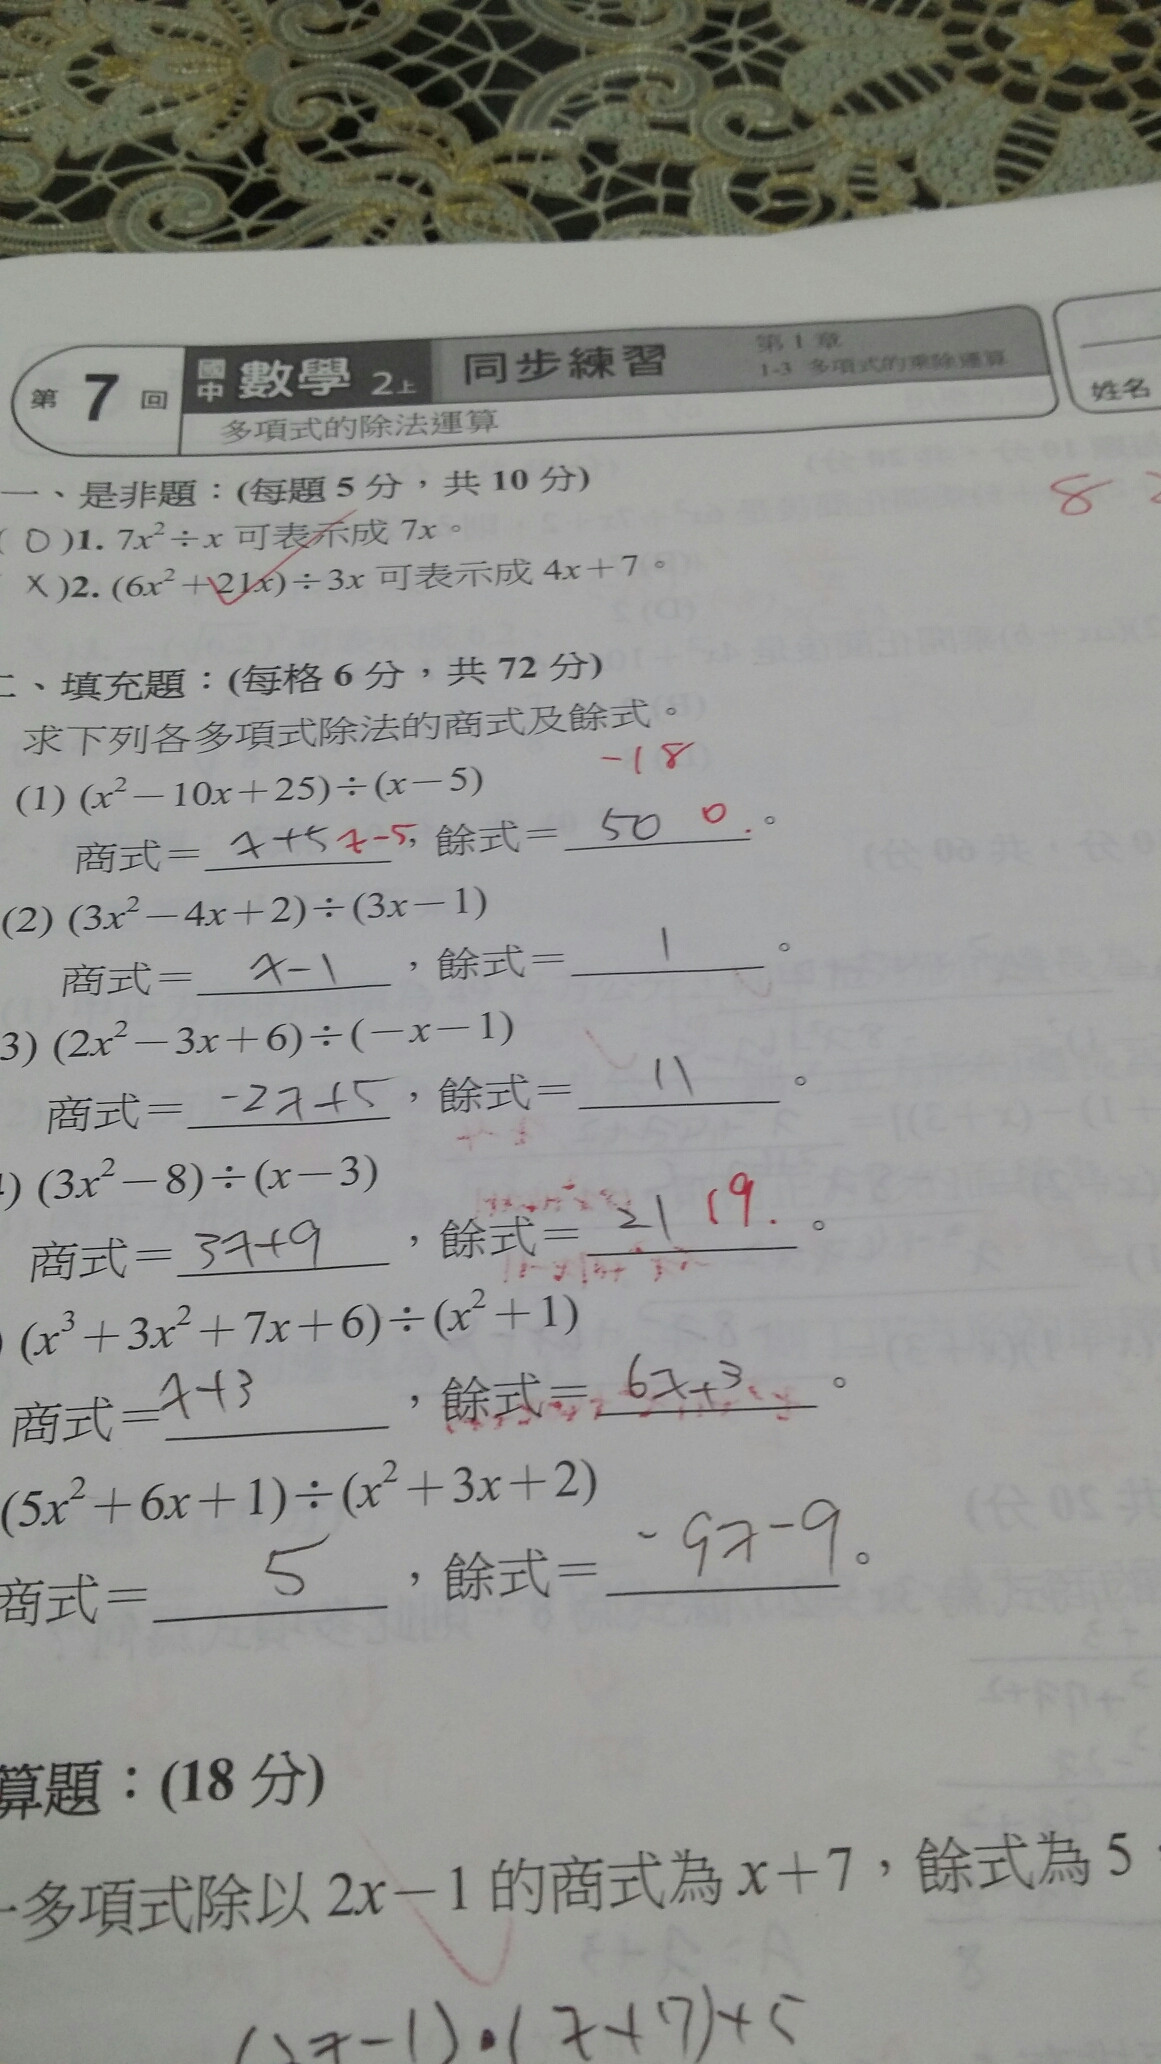 第 7 回 國中 數學 2上 同步練習 第1章
1-3 多項式的乘除運算
多項式的除法運算
姓名
一、是非題：(每題 5 分，共 10 分)
8
( O )1. 7x²÷x 可表示成 7x。
X )2. (6x²+21x)÷3x 可表示成 4x+7。
二、填充題：(每格 6 分，共 72 分)
求下列各多項式除法的商式及餘式。
-18
(1) (x²-10x+25)÷(x-5)
商式= x+5 x-5，餘式= 50 0.。
(2) (3x²-4x+2)÷(3x-1)
商式= x-1，餘式= 1。
3) (2x²-3x+6)÷(-x-1)
商式= -2x+5，餘式= 11。
) (3x²-8)÷(x-3)
商式= 3x+9，餘式= 21 19.。
) (x³+3x²+7x+6)÷(x²+1)
商式= x+3，餘式= 6x+3。
(5x²+6x+1)÷(x²+3x+2)
商式= 5，餘式= -9x-9。
算題：(18 分)
一多項式除以 2x-1 的商式為 x+7，餘式為 5
(2x-1)·(x+7)+5